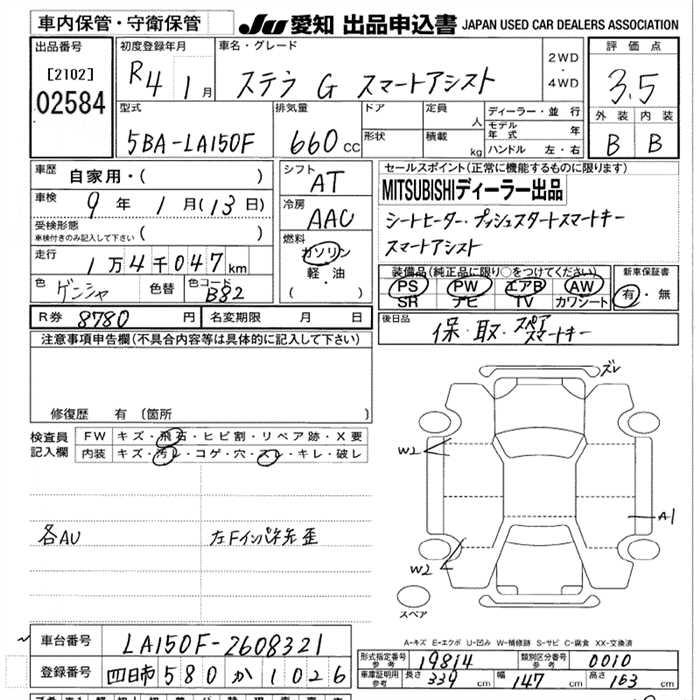 車内保管・守衛保管 JU 愛知 出品申込書 JAPAN USED CAR DEALERS ASSOCIATION
出品番号 [2102] 02584
初度登録年月 R4 1月
車名・グレード ステラ G スマートアシスト
2WD・4WD
評価点 3.5
外装 内装
B B
型式 5BA-LA150F
排気量 660cc
ドア 形状
定員 人
積載 kg
ディーラー・並行
モデル年式 年
ハンドル 左・右
車歴 自家用・( )
車検 9年 1月(13日)
受検形態 車検付きのみ記入して下さい ( )
走行 1万4千047km
色 ゲンシャ 色替 色コード B82
シフト AT
冷房 AAC
燃料 ガソリン 軽・油 ( )
セールスポイント(正常に機能するものに限ります)
MITSUBISHIディーラー出品
シートヒーター・プッシュスタートスマートキー
スマートアシスト
装備品(純正品に限り○をつけてください)
PS PW エアB AW
SR ナビ TV カワシート
新車保証書 有・無
R券 8780円 名変期限 月 日
後日品 保・取・スペアスマートキー
注意事項申告欄(不具合内容等は具体的に記入して下さい)
修復歴 有 (箇所 )
検査員記入欄
FW キズ・飛石・ヒビ割・リペア跡・X要
内装 キズ・汚レ・コゲ・穴・スレ・キレ・破レ
各AU 左Fインパネ先歪
ズレ
W2
A1
W2
スペア
A-キズ E-エクボ U-凹み W-補修跡 S-サビ C-腐食 XX-交換済
車台番号 LA150F-2608321
登録番号 四日市 580 か 1026
型式指定番号 参考 19814 類別区分番号 参考 0010
車庫証明用 参考 長さ 339cm 幅 147cm 高さ 163cm